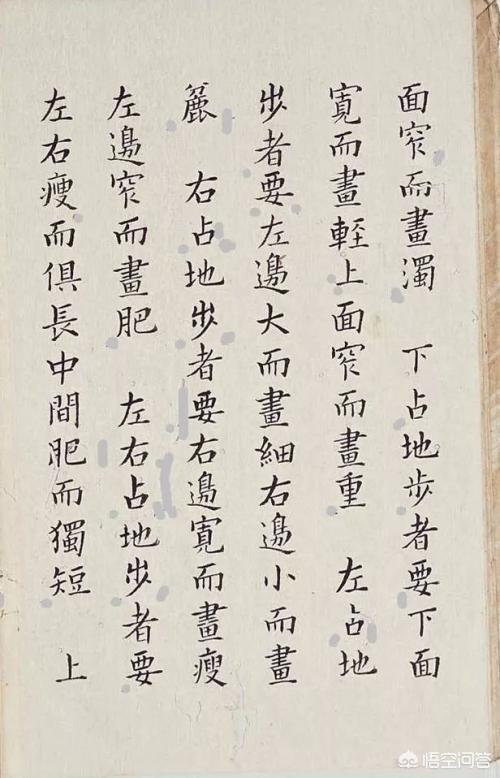 面窄而畫濁　下占地步者要下面
寬而畫輊上面窄而畫重　左占地
步者要左邊大而畫細右邊小而畫
麄　右占地步者要右邊寬而畫瘦
左邊窄而畫肥　左右占地步者要
左右瘦而俱長中間肥而獨短　上
悟空问答